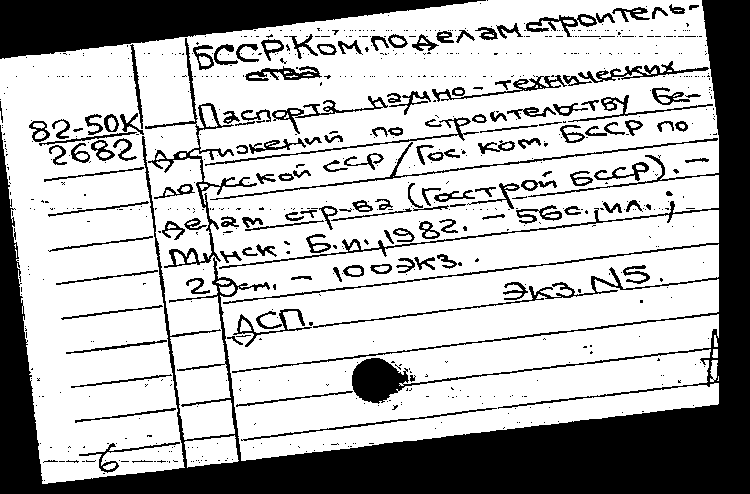 БССР. Ком. по делам строитель-
ства.
82-50К
2682
Паспорта научно-технических
достижений по строительству Бе-
лорусской ССР / Гос. ком. БССР по
делам стр-ва (Госстрой БССР). –
Минск: Б.и., 1982. – 56с., ил.;
29см. – 100экз..
Экз. N5.
ДСП.
6